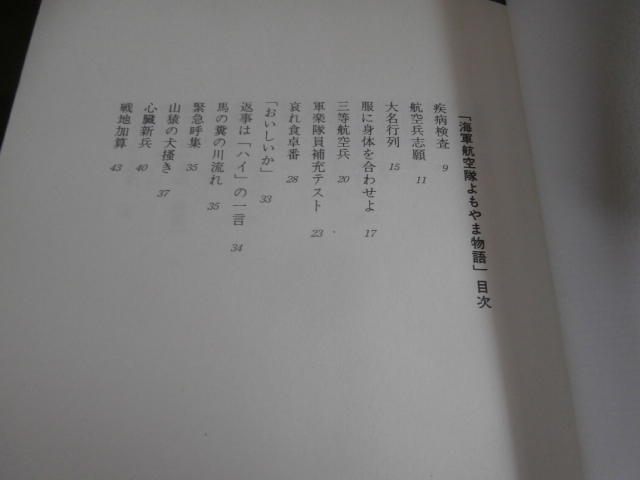 「海軍航空隊よもやま物語」目次
疾病検査 9
航空兵志願 11
大名行列 15
服に身体を合わせよ 17
三等航空兵 20
軍楽隊員補充テスト 23
哀れ食卓番 28
「おいしいか」 33
返事は「ハイ」の一言 34
馬の糞の川流れ 35
緊急呼集 35
山猿の犬掻き 37
心臓新兵 40
戦地加算 43